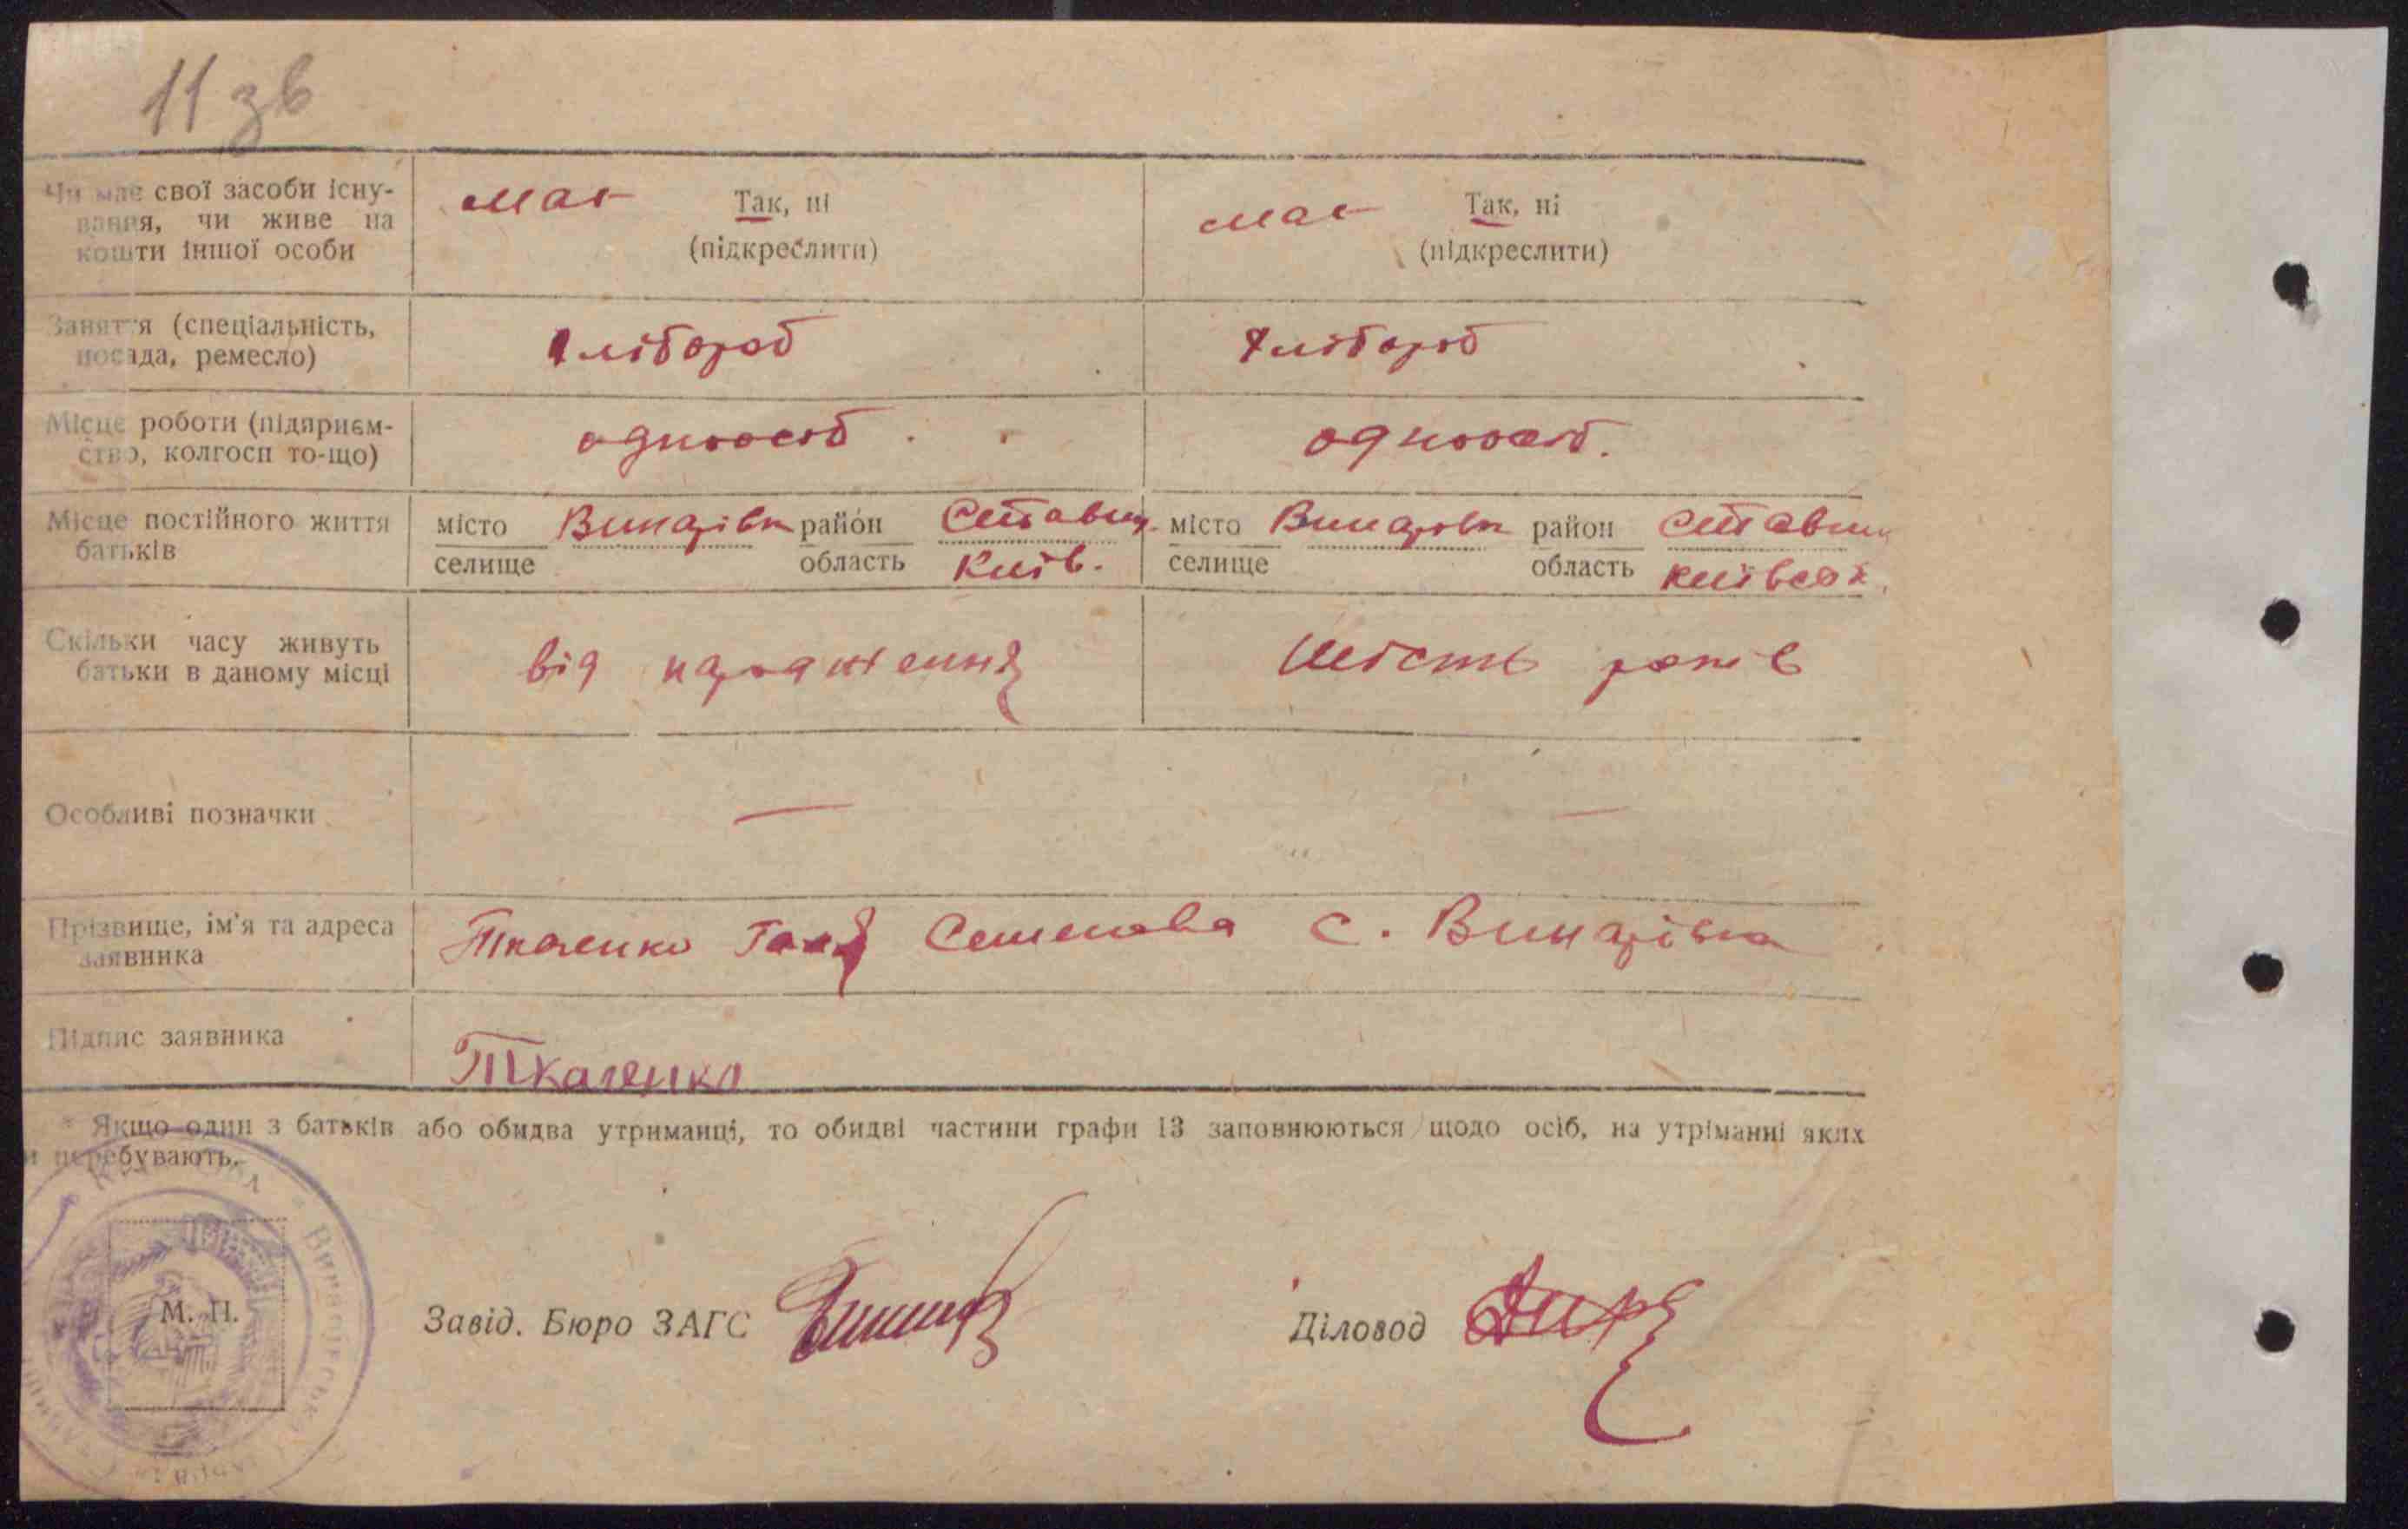 11 зв
Чи має свої засоби існу-
вання, чи живе на
кошти іншої особи
має Так, ні
(підкреслити)
має Так, ні
(підкреслити)
Заняття (спеціальність,
посада, ремесло)
хлібороб
хлібороб
Місце роботи (підприєм-
ство, колгосп то-що)
одноосіб
одноосіб.
Місце постійного життя
батьків
місто Винарівка район Ставищ.
селище область Київ.
місто Винарівка район Ставищ
селище область Київськ.
Скільки часу живуть
батьки в даному місці
від народження
шість років
Особливі позначки
— —
Прізвище, ім'я та адреса
заявника
Ткаченко Ганя Семенова с. Винарівка
Підпис заявника
Ткаченко
* Якщо один з батьків або обидва утриманці, то обидві частини графи 13 заповнюються щодо осіб, на утріманні яких
и перебувають.
М. П.
Завід. Бюро ЗАГС
Діловод